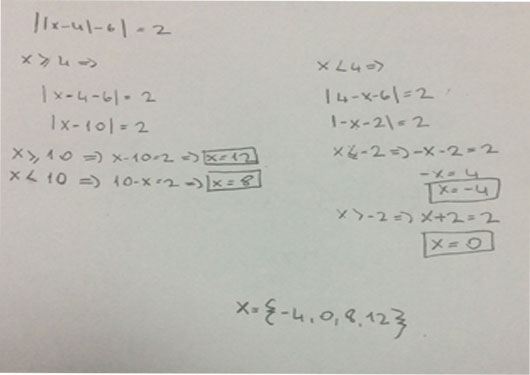 ||x-4|-6| = 2
x ⩾ 4 =>
|x-4-6| = 2
|x-10| = 2
x ⩾ 10 => x-10=2 => x=12
x < 10 => 10-x=2 => x=8
x < 4 =>
|4-x-6| = 2
|-x-2| = 2
x ⩽ -2 => -x-2 = 2
-x = 4
x = -4
x > -2 => x+2 = 2
x = 0
x = {-4, 0, 8, 12}